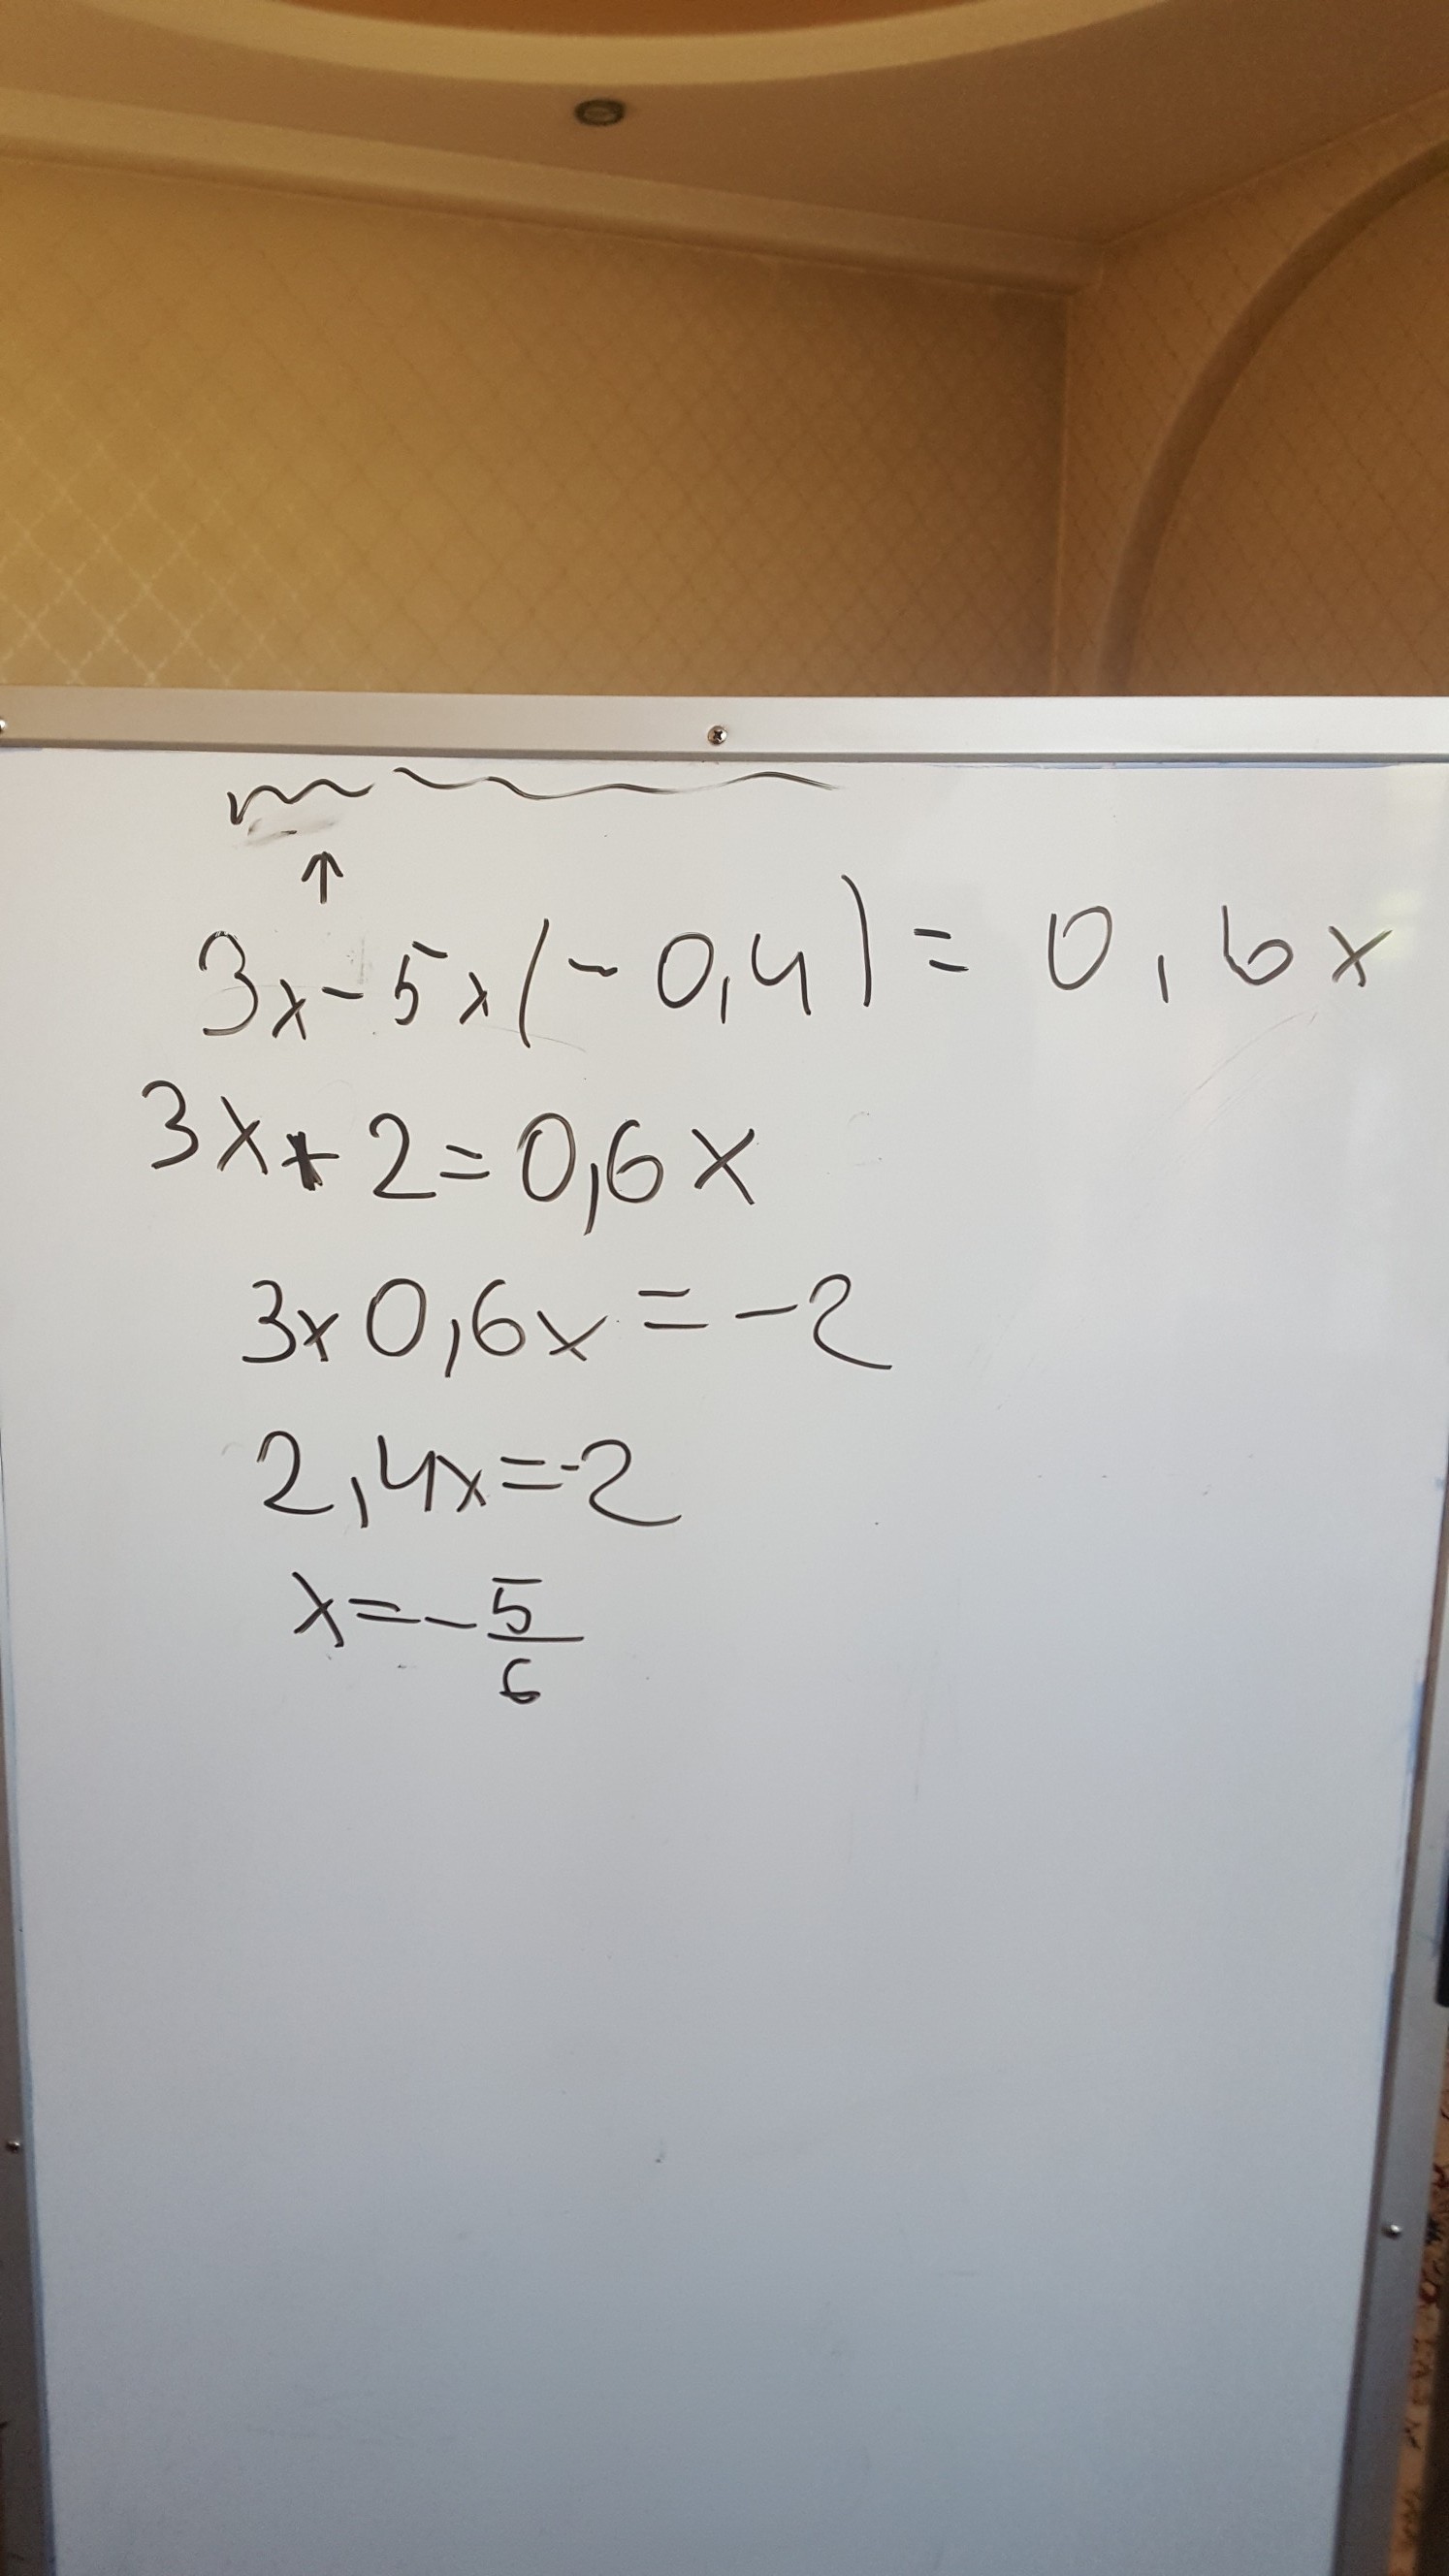 ↑
3x-5x(-0,4)=0,6x
3x+2=0,6x
3x0,6x=-2
2,4x=-2
x=-5/6